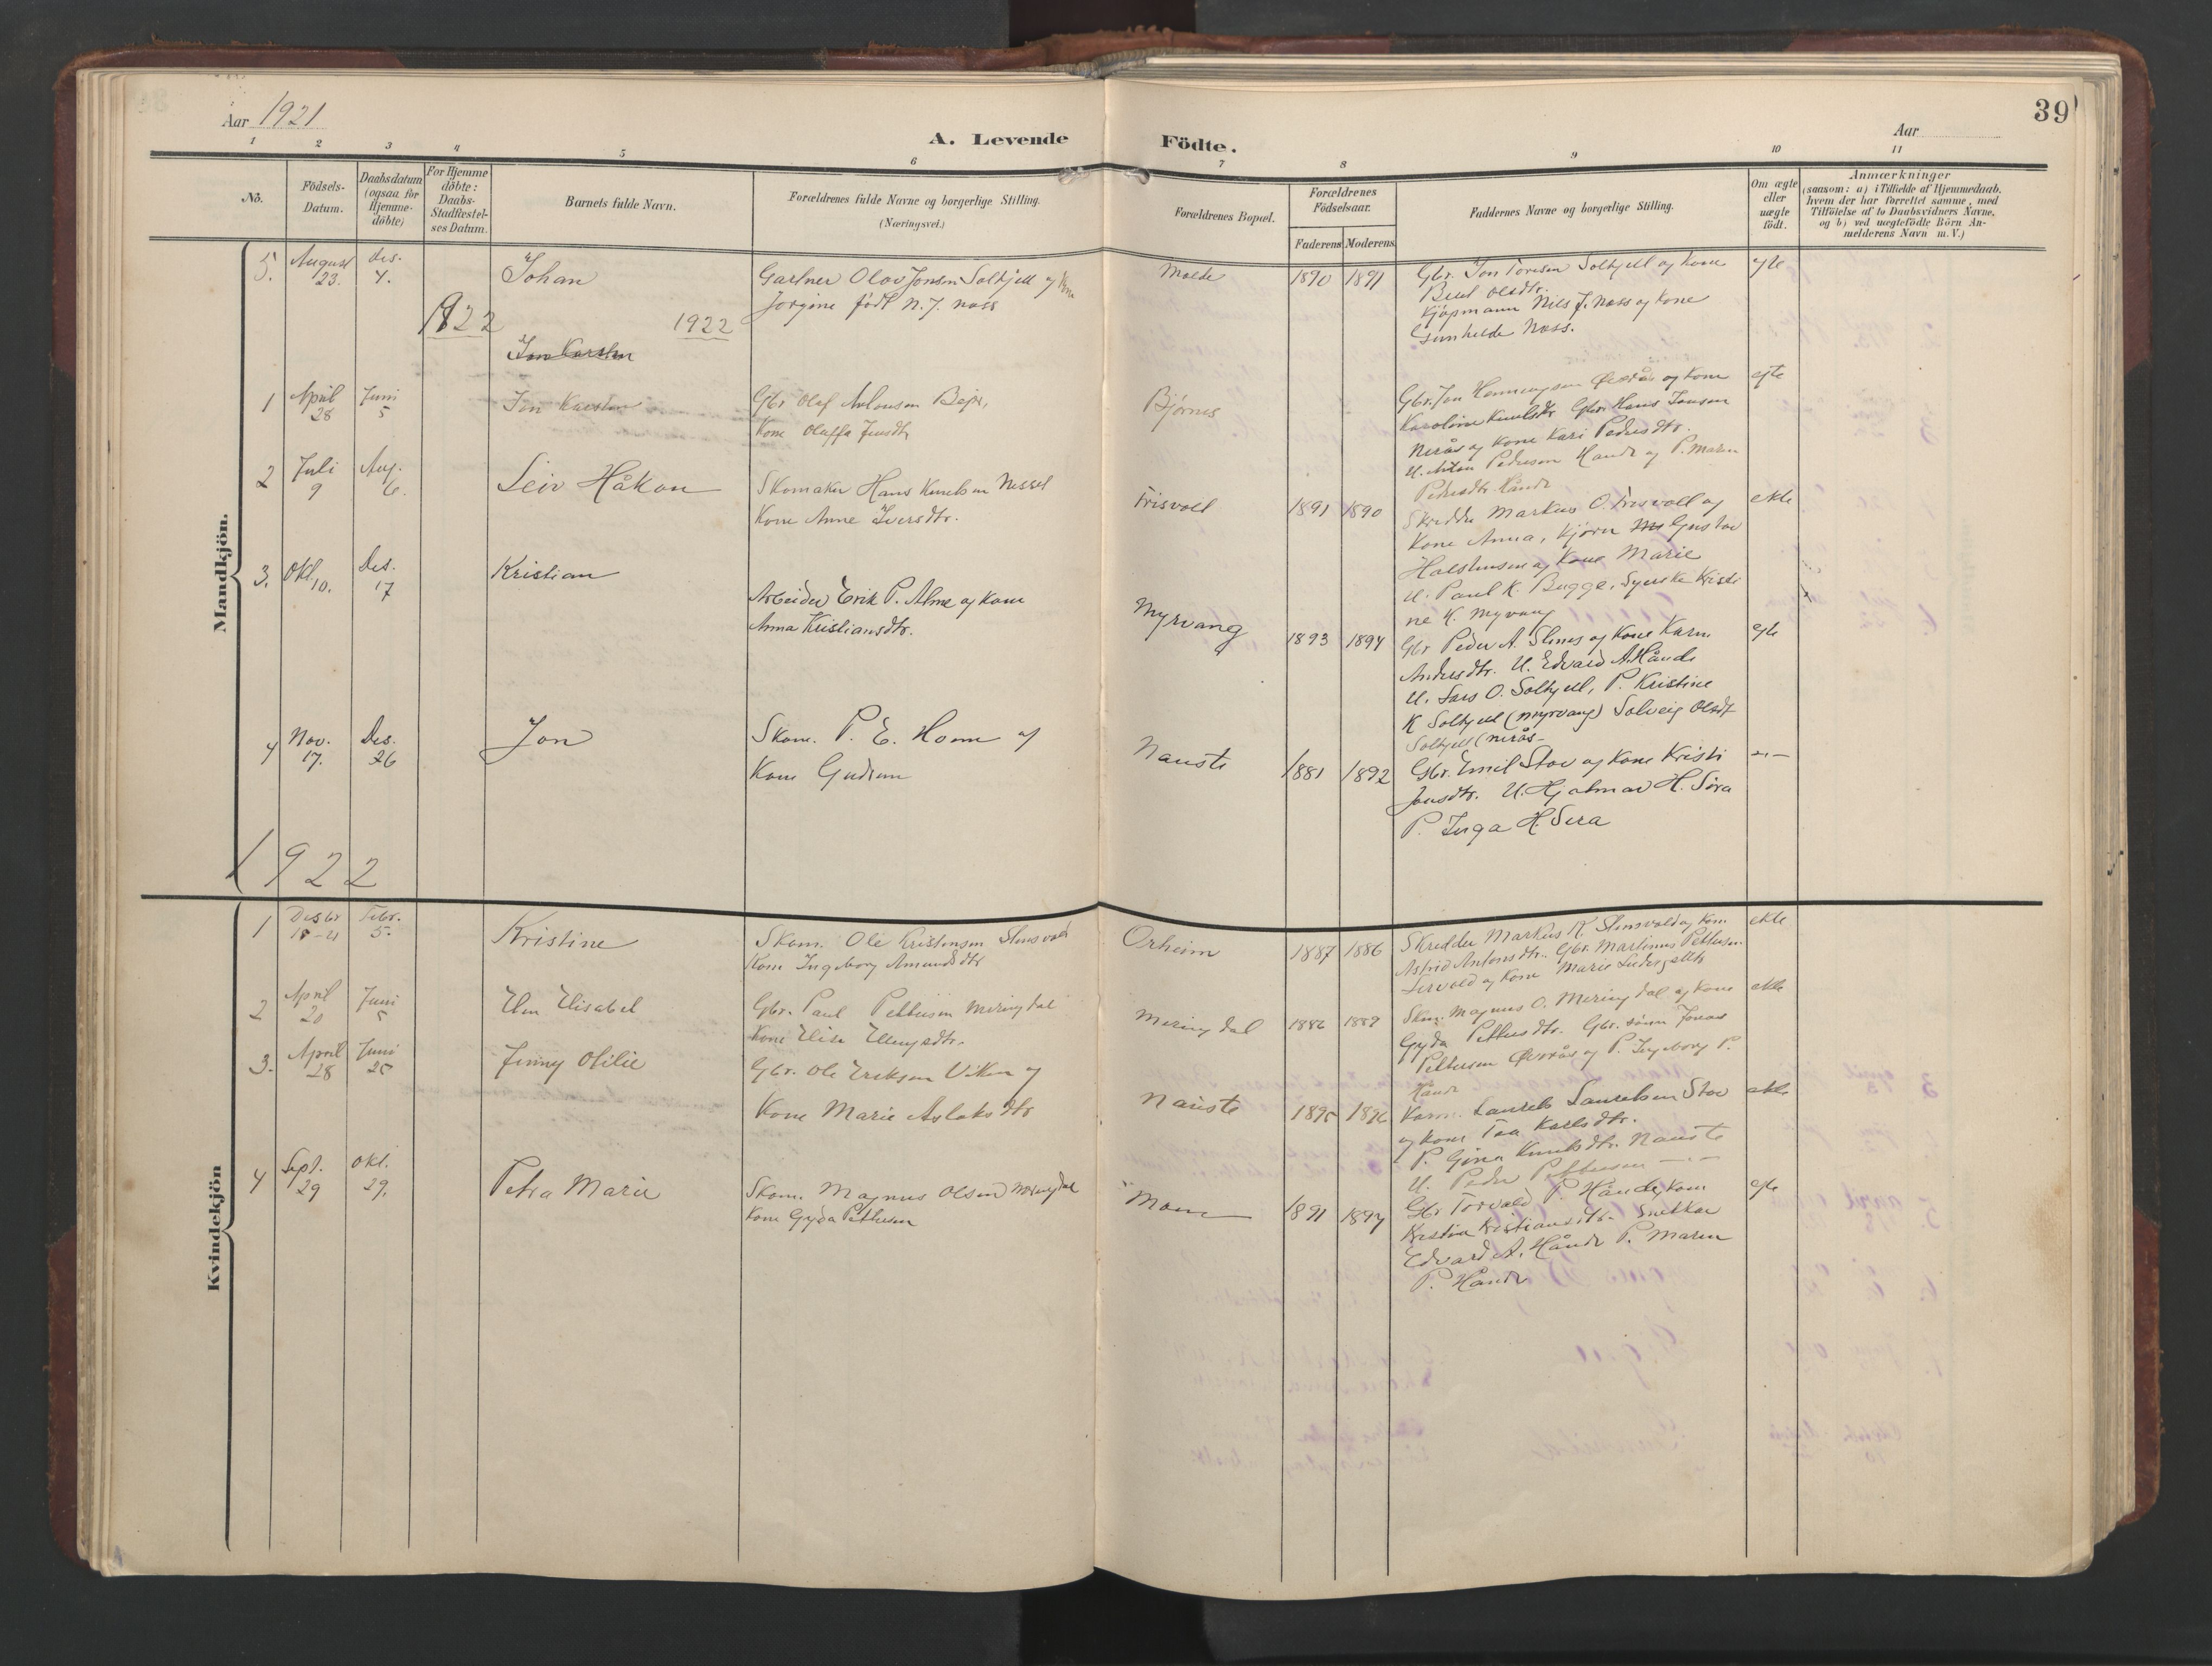 Aar 1921
A. Levende Födte.
Aar
39
1 2 3 4 5 6 7 8 9 10 11
No.
Födsels-
Datum.
Daabsdatum
(ogsaa for
Hjemme-
döbte)
For Hjemme
döbte:
Daabs-
Stadfæstel-
ses Datum.
Barnets fulde Navn.
Forældrenes fulde Navne og borgerlige Stilling.
(Næringsvei.)
Forældrenes Bopæl.
Forældrenes
Födselsaar.
Faderens Moderens
Faddernes Navne og borgerlige Stilling.
Om ægte
eller
uægte
födt.
Anmærkninger
(saasom: a) i Tilfælde af Hjemmedaab,
hvem der har forrettet samme, med
Tilföielse af to Daabsvidners Navne,
og b) ved uægtefödte Börn An-
melderens Navn m. V.)
Mandkjön.
5. August 23. Des. 4. Johan
Gartner Olav Jonsen Solhjell og Kone
Jorgine født N. J. Næss
Molde 1890 1891
Gbr. Jon Toresen Solhjell og Kone
Beret Olsdtr.
Kjøpmann Nils J. Næss og Kone
Gunhilde Næss.
egte
1922 1922
Jon Karsten
1 April 28 Juni 5 Jon Karsten
Gbr Olaf Antonsen
Kone Olaffa Jensdtr
Bjørnes
Gbr. Jon Henningsen Øverås og Kone
Karoline Knutsdtr Gbr. Hans Jonsen
Nerås og Kone Kari Pedersdtr.
U. Anton Pedersen Hande og P. Maren
Pedersdtr. Hande
egte
2 Juli 9 Aug. 6. Leiv Håkon
Skomaker Hans Knutsen Nesset
Kone Anne Iversdtr.
Frisvoll 1891 1890
Skredder Markus O. Frisvoll og
Kone Anna, Kjørn Gustav
Halstensen og Kone Marie
U. Paul K. Bugge, Syerske Kristi
ne K. Myrvang
ekte
3. Okt. 10. Des. 17 Kristian
Arbeider Erik P. Alme og Kone
Anna Kristiansdtr.
Myrvang 1893 1894
Gbr Peder A. Stenes og Kone Karen
Andersdtr. U. Edvard A. Hånde
U. Lars O. Solhjell, P. Kristine
K Solhjell (Myrvang) Solveig Olsdt
Solhjell (Nerås-
egte
4 Nov. 17. Des. 26 Jon
Skom. P. E. Homme og
Kone Gudrun
Nauste 1881 1892
Gbr. Emil Stov og Kone Kristi
Jonsdtr. U. Hjalmar H. Sira
P. Inga H. Sira
-"-
1922
Kvindekjön
1 Desbr 18-21 Febr. 5. Kristine
Skom. Ole Kristensen Stensvold
Kone Ingeborg Amundsdtr
Orheim 1887 1886
Skredder Markus K. Stensvold og Kone
Astrid Antonsdtr. Gbr. Martinus Pettersen
og Kone Marie
ekte
2 April 20 Juni 5 Elen Elisabet
Gbr. Paul Pettersen Meringdal
Kone Elise Ellingsdtr.
Meringdal 1886 1889
Skom. Magnus O. Meringdal og Kone
Gyda Pettersdtr. Gbr. sønn Jonas
Pettersen Øverås og P. Ingeborg P.
Hande
ekte
3. April 28 Juni 25 Jenny Otilie
Gbr. Ole Eriksen Viken og
Kone Marie Aslaksdtr
Nauste 1895 1896
Laurits Lauritsen Stov
og Kone Karlsdtr.
P. Gina Knutsdtr. Nauste
U. Peder Pettersen -"-
ekte
4 Sept. 29 Okt. 29. Petra Marie
Skom. Magnus Olsen Meringdal
Kone Gyda Pettersen
Moen 1891 1897
Gbr Torvald P. Hånde og Kone
Kristine Kristiansdtr. Snekker
Edvard A. Hånde P. Maren
P. Hånde
egte